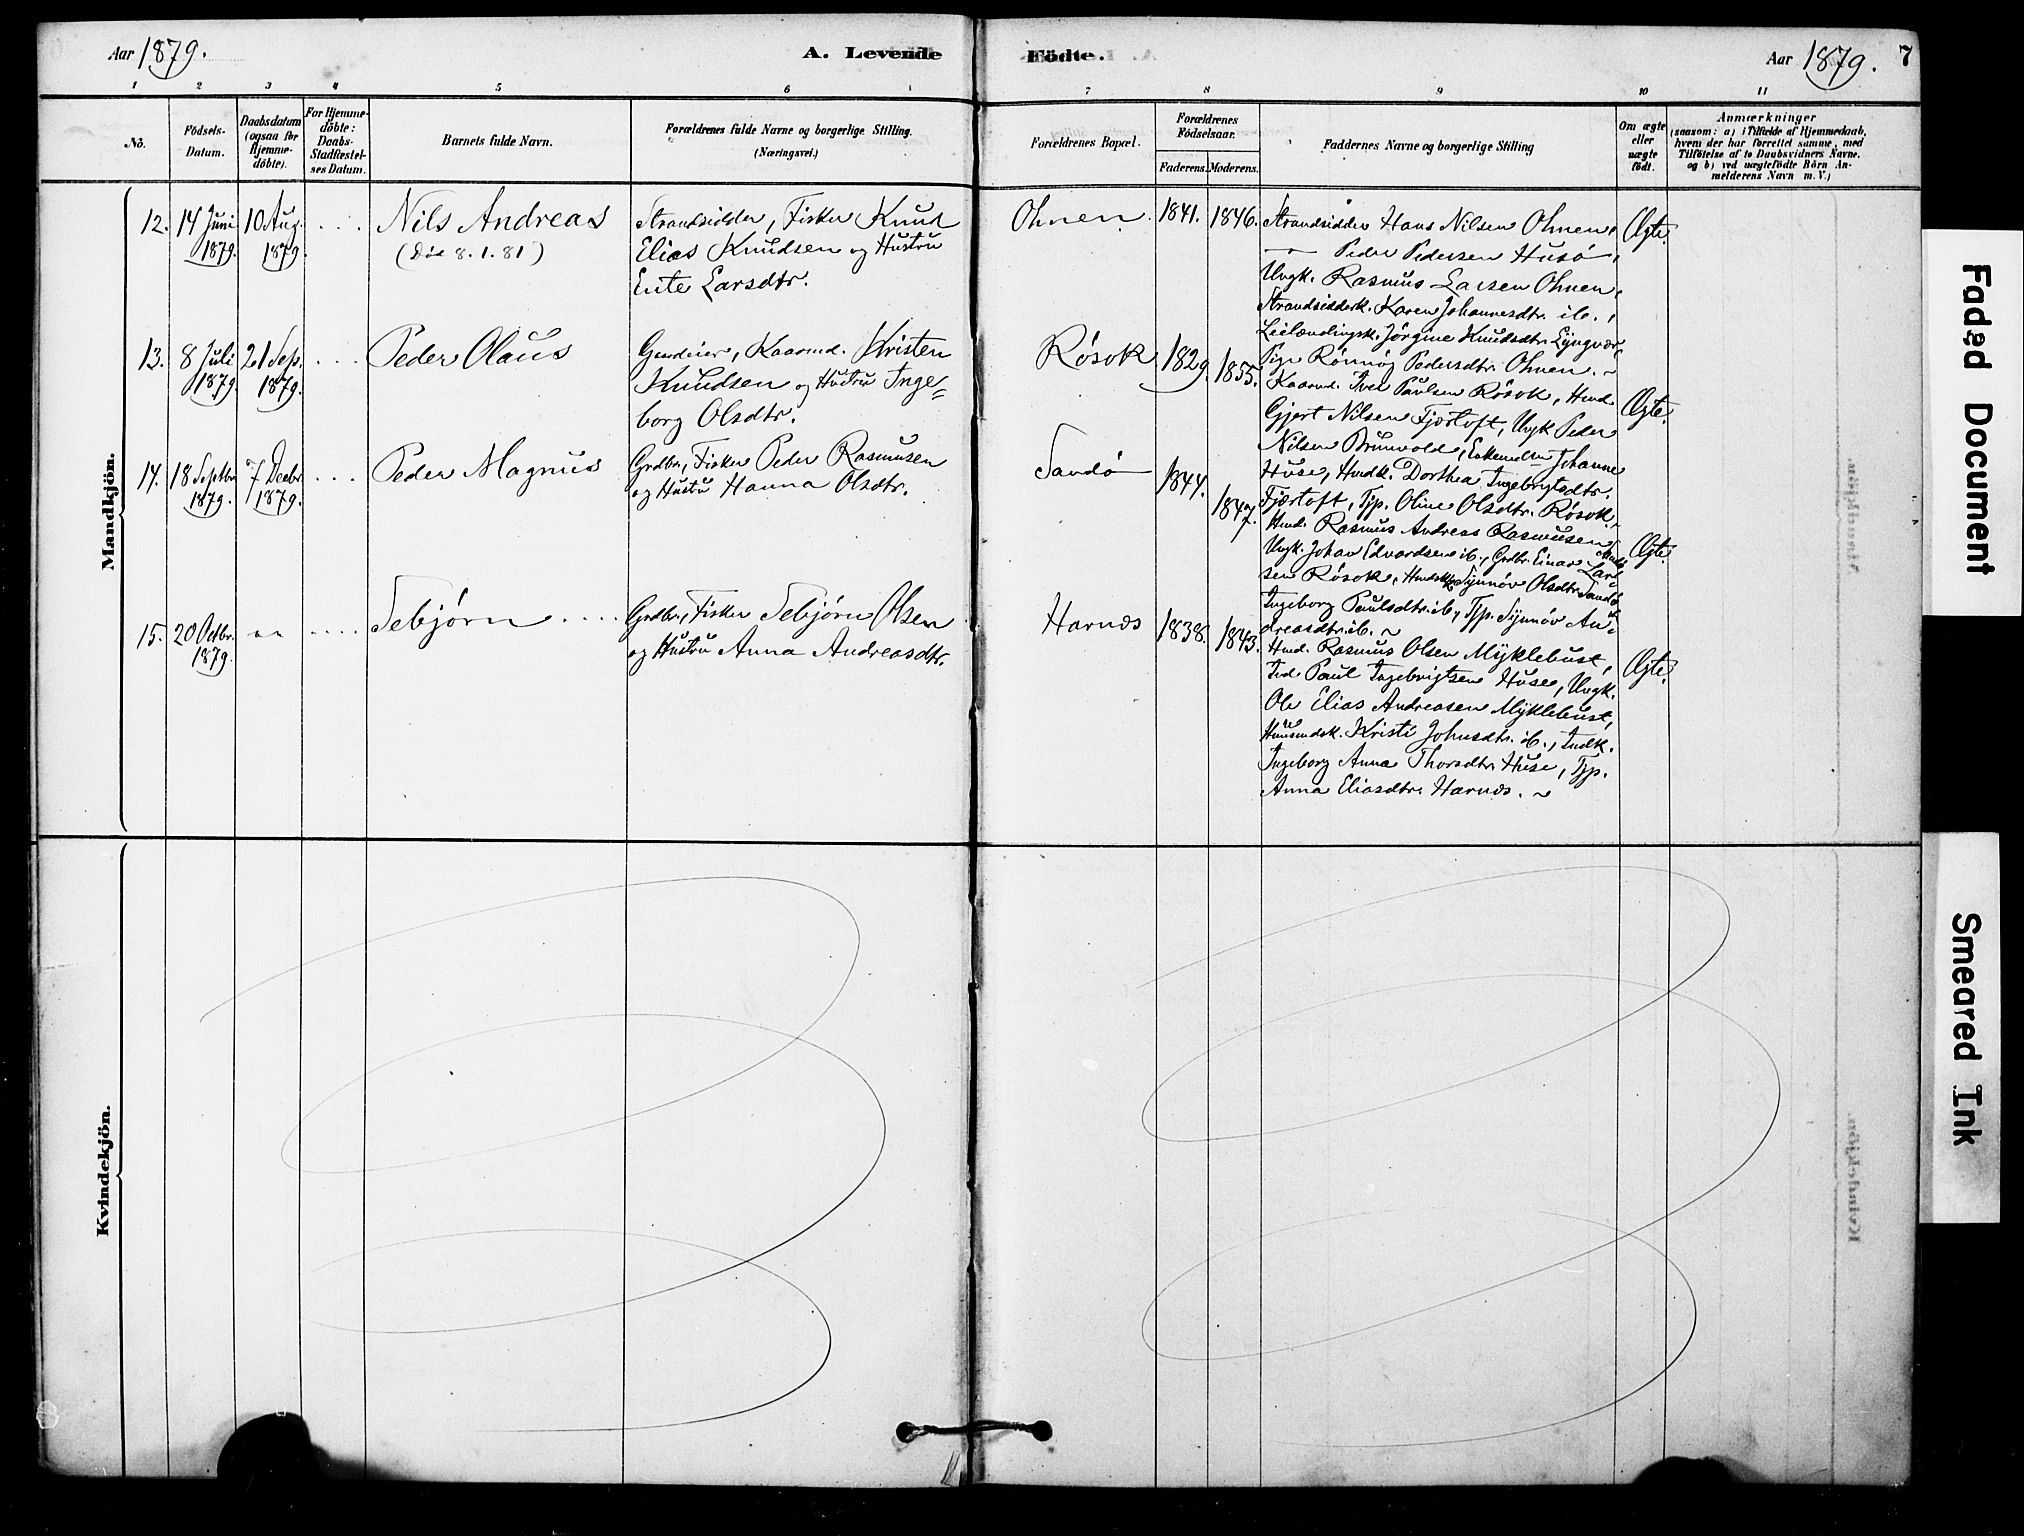 Aar 1879.
A. Levende
Födte.
Aar 1879. 7
1 2 3 4 5 6
7 8 9 10 11
No.
Födsels-
Datum.
Daabsdatum
(ogsaa for
Hjemme-
döbte).
For Hjemme-
döbte:
Daabs-
Stadfæstel-
ses Datum.
Barnets fulde Navn.
Forældrenes fulde Navne og borgerlige Stilling.
(Næringsvei.)
Forældrenes Bopæl.
Forældrenes
Födselsaar.
Faderens.
Moderens.
Faddernes Navne og borgerlige Stilling
Om ægte
eller
uægte
födt.
Anmærkninger
(saasom: a) i Tilfælde af Hjemmedaab,
hvem der har forrettet samme, med
Tilföielse af to Daabsvidners Navne,
og b) ved uægtefödte Börn An-
melderens Navn m. V.)
Mandkjön.
12.
14 Juni
1879.
10 Aug.
1879.
Nils Andreas
(Død 8.1.81)
Strandsidder, Fisker Knud
Elias Knudsen og Hustru
Larsdtr.
Ohnen.
1841.
1846.
Strandsidder Hans Nilsen Ohnen,
Peder Pedersen Husö,
Ungk. Rasmus Larsen Ohnen,
Strandsidderk. Karen Johannesdtr. ib.,
Leilændingsk. Jörgine Knudsdtr. Lyngvær
Pige Rönnög Pedersdtr. Ohnen.
Ægte.
13.
8 Juli
1879
21 Sep.
1879.
Peder Olaus
Gaardeier, Kaarmd. Kristen
Knudsen og Hustru Inge-
borg Olsdtr.
Rösok
1829.
1855.
Kaarmd. Iver Paulsen Rösok, Hmd.
Gjert Nilsen Fjærtoft, Ungk Peder
Nilsen Brunvold, Johanne
Huse, Hmdk. Dorthea Ingebrigtsdtr.
Fjærtoft, Tjp. Oline Olsdtr. Rösok.
Ægte.
14.
18 Septbr.
1879.
7 Decbr.
1879.
Peder Magnus
Grdbr., Fisker Peder Rasmusen
og Hustru Hanna Olsdtr.
Sandö
1844.
1847.
Hmd. Rasmus Andreas Rasmusen
Ungk. Johan Edvardsen ib., Grdbr. Einar Lar-
sen Rösok, Synnöv Olsdtr. Sandö
Ingeborg Paulsdtr. ib., Tjp. Synnöv An-
dreasdtr. ib.
Ægte.
15.
20 Octbr.
1879.
Sebjörn
Grdbr., Fisker Sebjörn Olsen
og Hustru Anna Andreasdtr.
Harnæs
1838.
1843.
Hmd. Rasmus Olsen Myklebust,
Ind. Paul Ingebrigtsen Huse, Ungk.
Ole Elias Andreasen Myklebust,
Huusmdsk. Kristi Johnsdtr. ib., Indk.
Ingeborg Anna Thorsdtr. Huse, Tjp.
Anna Eliasdtr. Harnæs.
Ægte.
Kvindekjön.
Faded Document
Smeared Ink